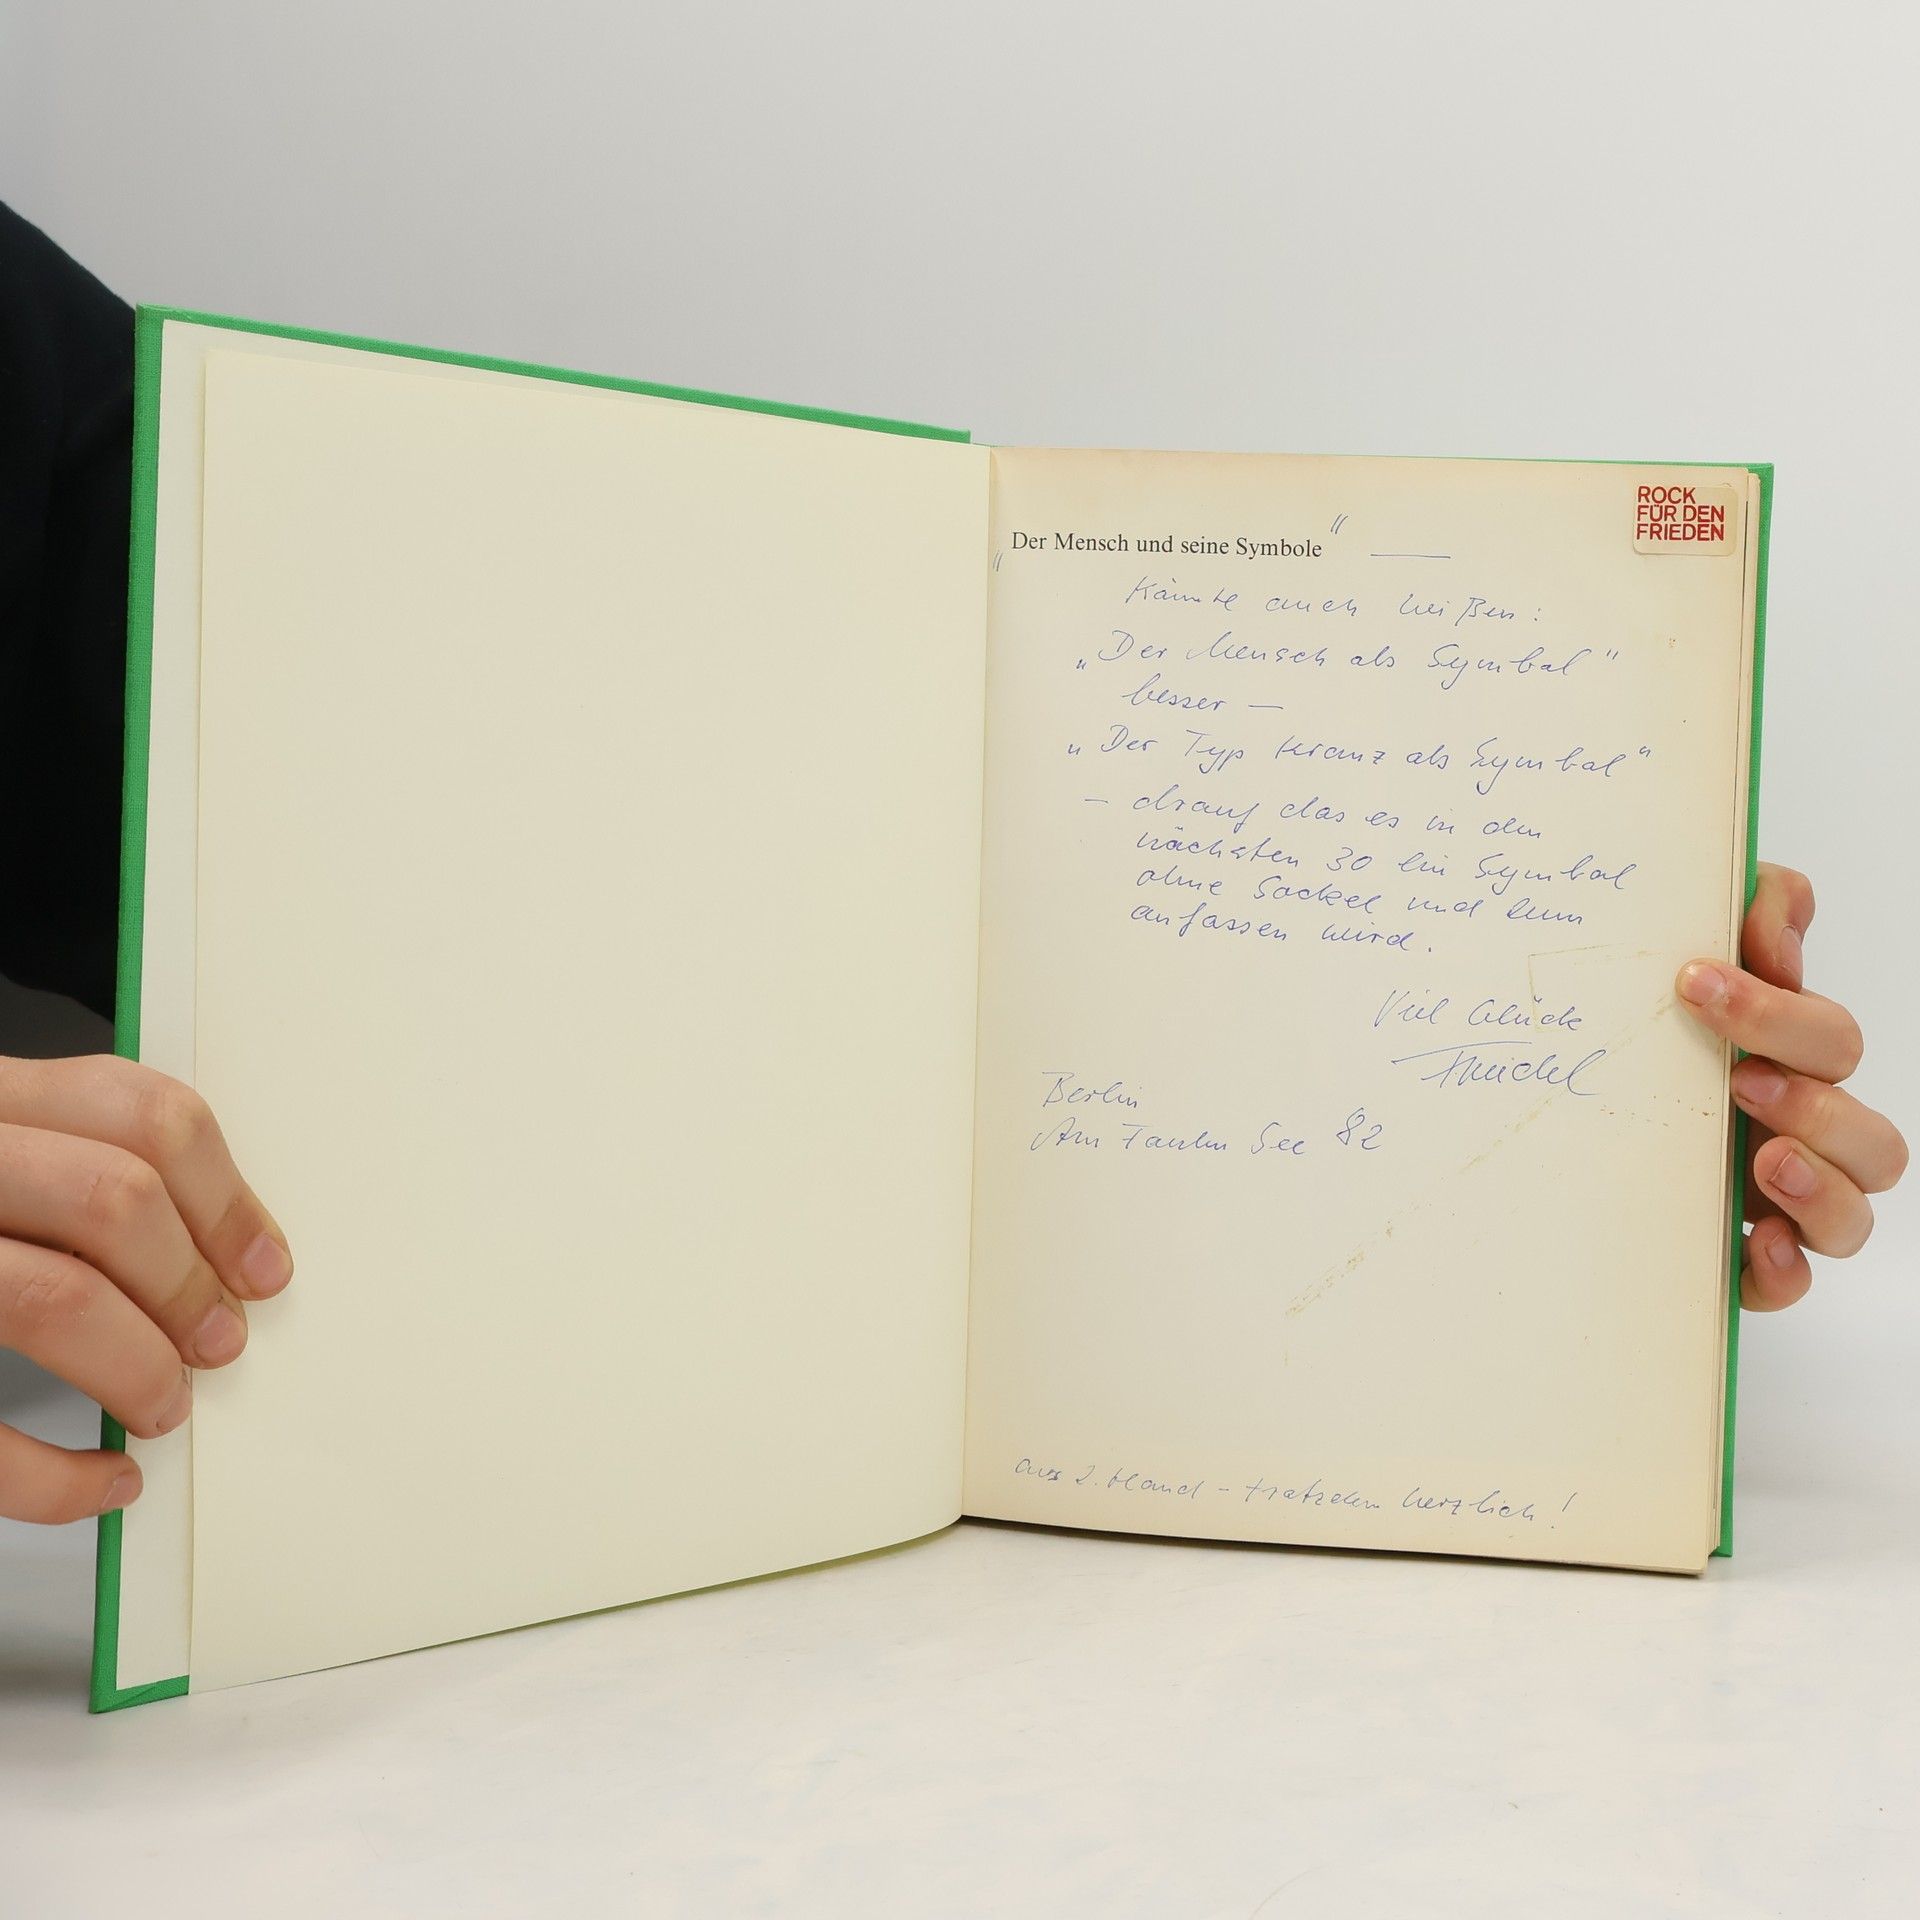 ROCK
FÜR DEN
FRIEDEN
"Der Mensch und seine Symbole" —
Könnte auch heißen:
„Der Mensch als Symbol"
besser —
„Der Typ Kranz als Symbol"
— drauf das es in den
nächsten 30 ein Symbol
ohne Sockel und zum
anfassen wird.
Viel Glück
Berlin
Am Faulen See 82
aus 2. Hand - trotzdem herzlich!